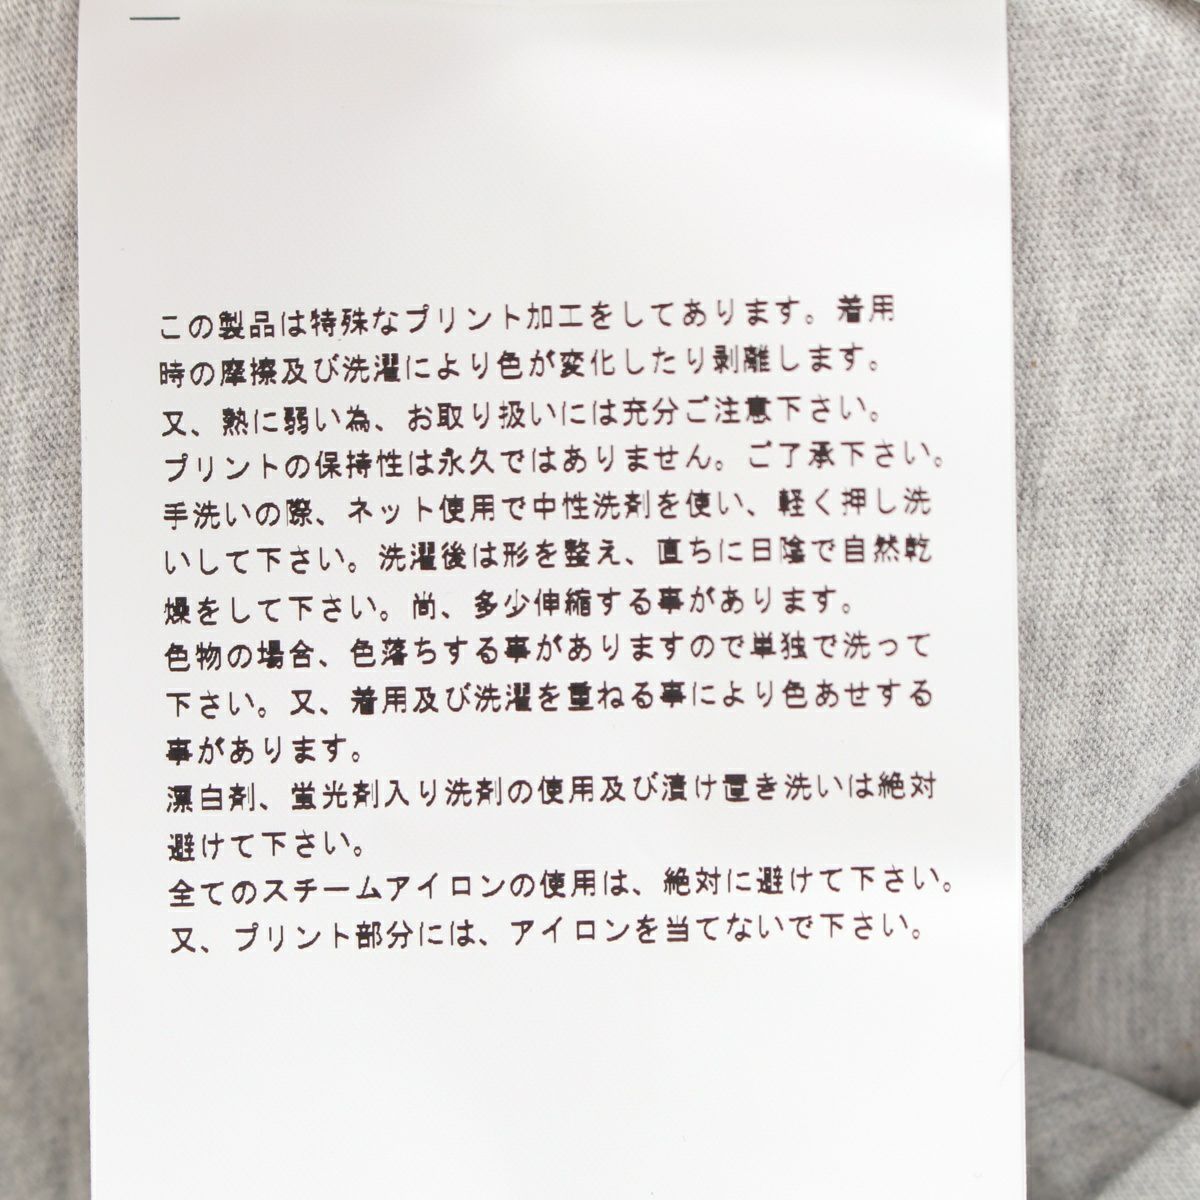 この製品は特殊なプリント加工をしてあります。着用
時の摩擦及び洗濯により色が変化したり剥離します。
又、熱に弱い為、お取り扱いには充分ご注意下さい。
プリントの保持性は永久ではありません。ご了承下さい。
手洗いの際、ネット使用で中性洗剤を使い、軽く押し洗
いして下さい。洗濯後は形を整え、直ちに日陰で自然乾
燥をして下さい。尚、多少伸縮する事があります。
色物の場合、色落ちする事がありますので単独で洗って
下さい。又、着用及び洗濯を重ねる事により色あせする
事があります。
漂白剤、蛍光剤入り洗剤の使用及び漬け置き洗いは絶対
避けて下さい。
全てのスチームアイロンの使用は、絶対に避けて下さい。
又、プリント部分には、アイロンを当てないで下さい。